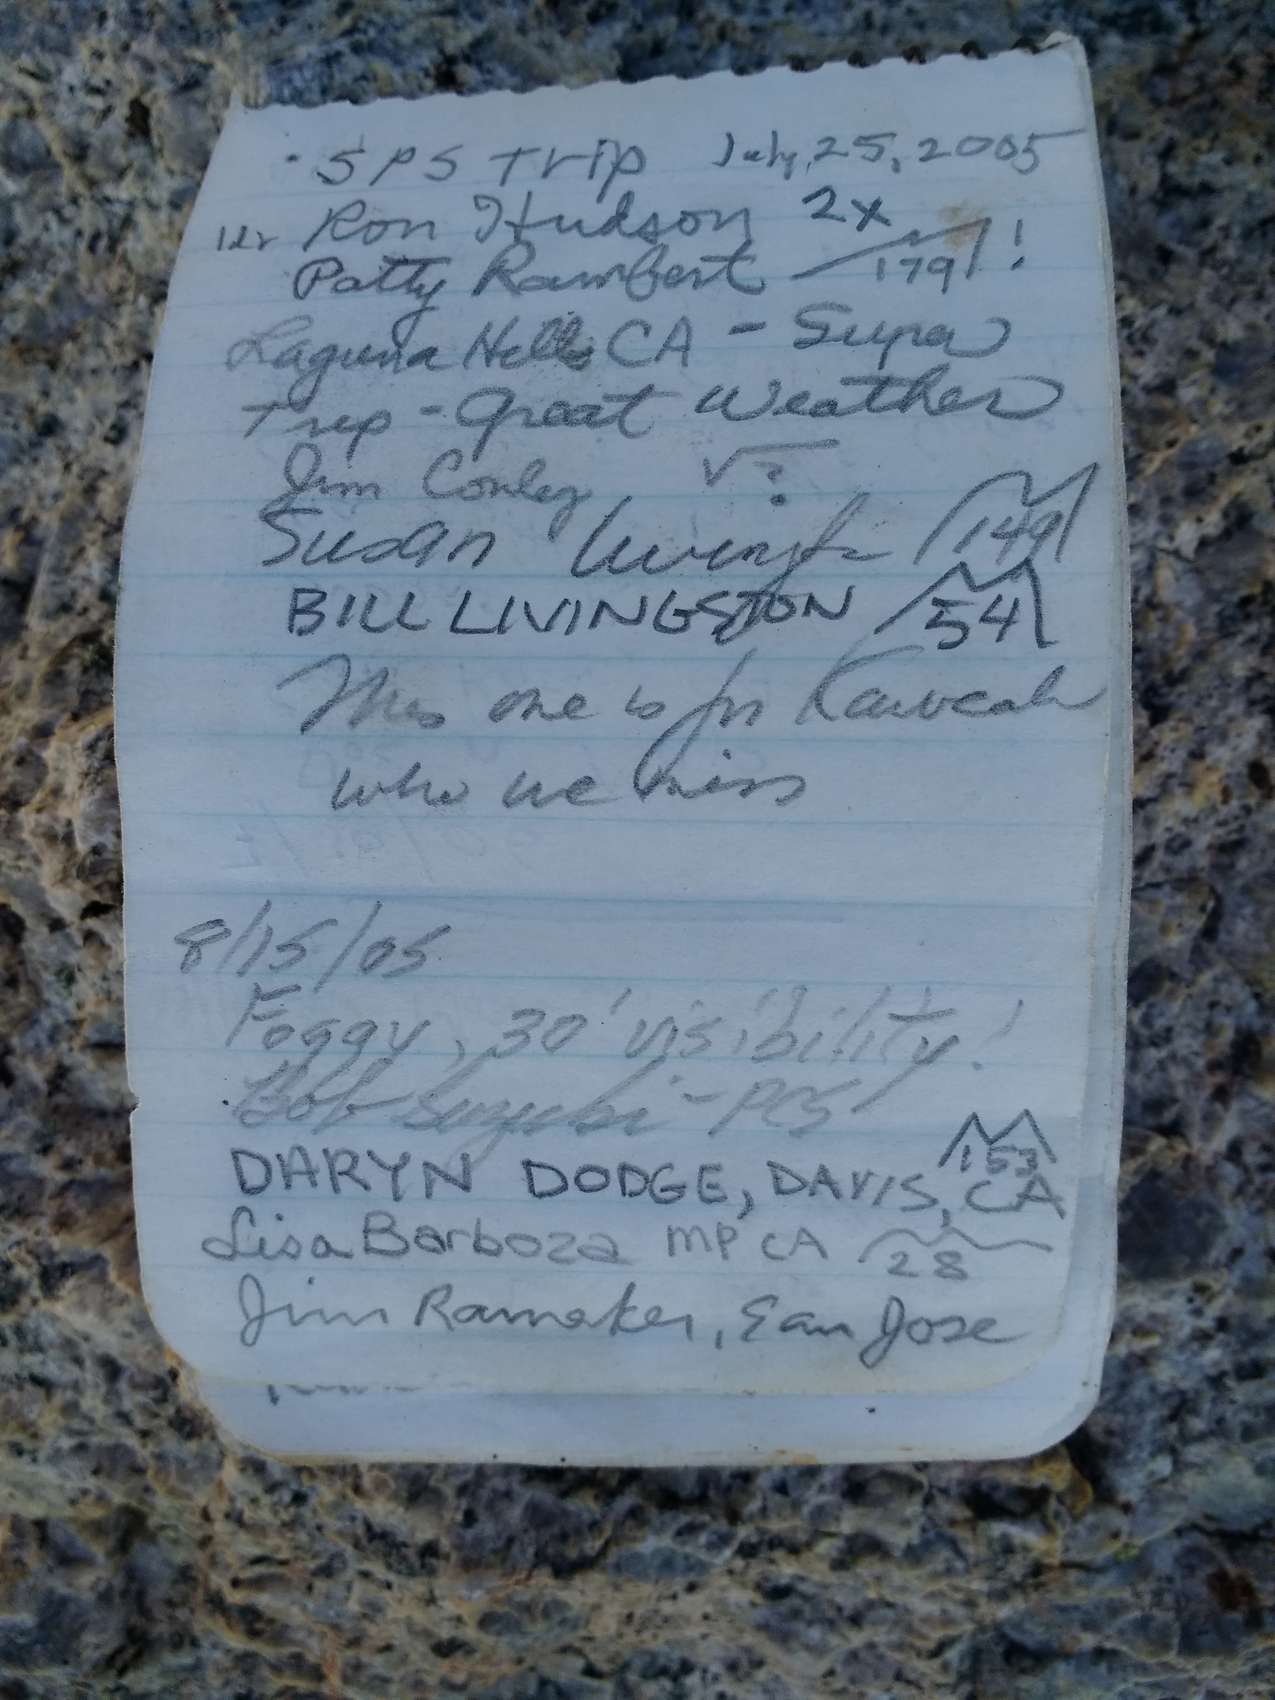 SPS Trip July, 25, 2005
ldr Ron Hudson 2x
Patty Rambert 179 !
Laguna Hills CA - Supa
Trip - Great Weather
Jim Conley √?
Susan 149
BILL LIVINGSTON 54
This one is for Kaweah
who we miss
8/15/05
Foggy, 30' visibility!
Bob Suzuki - PCS
153
DARYN DODGE, DAVIS, CA
Lisa Barboza MP CA 28
Jim Ramaker, San Jose